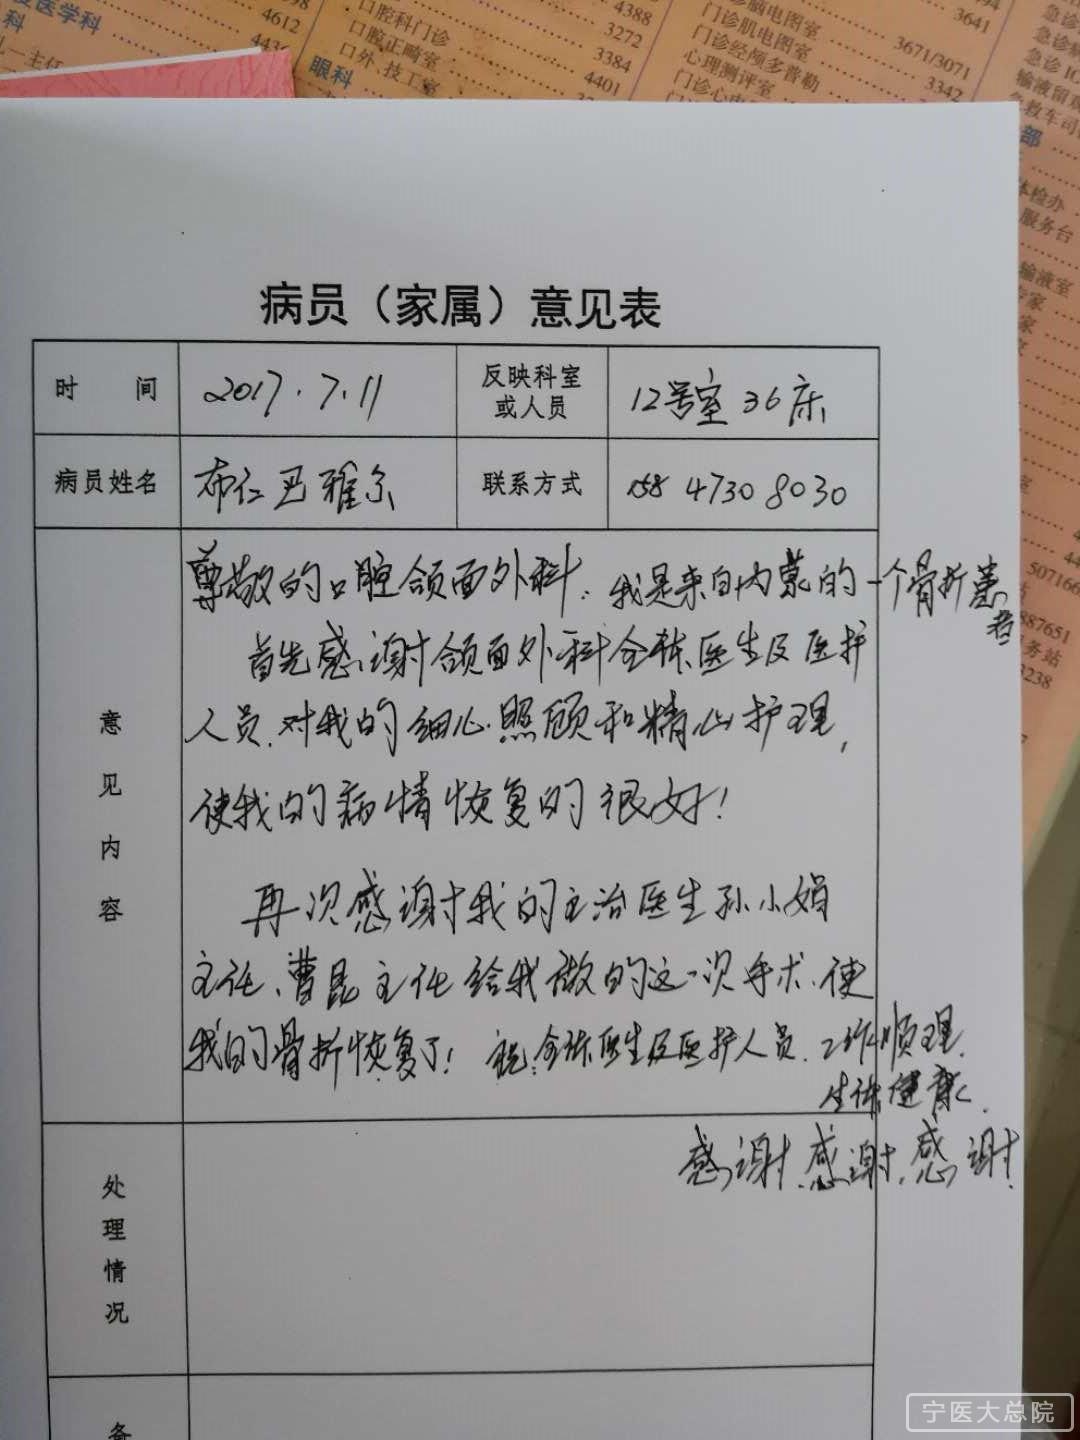 4612
口腔科门诊
口腔正畸室
口外、技工室
眼科
4388
3272
3384
4401
门诊脑电图室
门诊肌电图室
门诊经颅多普勒
心理测评室
3641
3671/3071
3342
病员（家属）意见表
时 间
2017.7.11
反映科室
或人员
12号室 36床
病员姓名
布仁巴雅尔
联系方式
158 4730 8030
意见内容
尊敬的口腔颌面外科：我是来自内蒙的一个骨折患者
首先感谢颌面外科全体医生及医护
人员，对我的细心照顾和精心护理，
使我的病情恢复的很好！
再次感谢我的主治医生孙小娟
主任、曹昆主任给我做的这一次手术，使
我的骨折恢复了！祝：全体医生及医护人员，工作顺理，
生体健康。
感谢，感谢，感谢，
处理情况
备
体检办
服务台
输液室
507166
887651
3238
宁医大总院